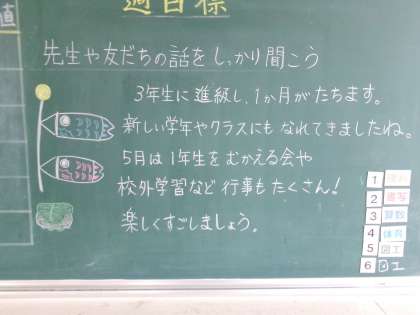 週目標
値
先生や友だちの話をしっかり聞こう
3年生に進級し、1か月がたちます。
新しい学年やクラスにもなれてきましたね。
5月は1年生をむかえる会や
校外学習など行事もたくさん!
楽しくすごしましょう。
1
2 書写
3 算数
4 体育
5 図工
6 図工